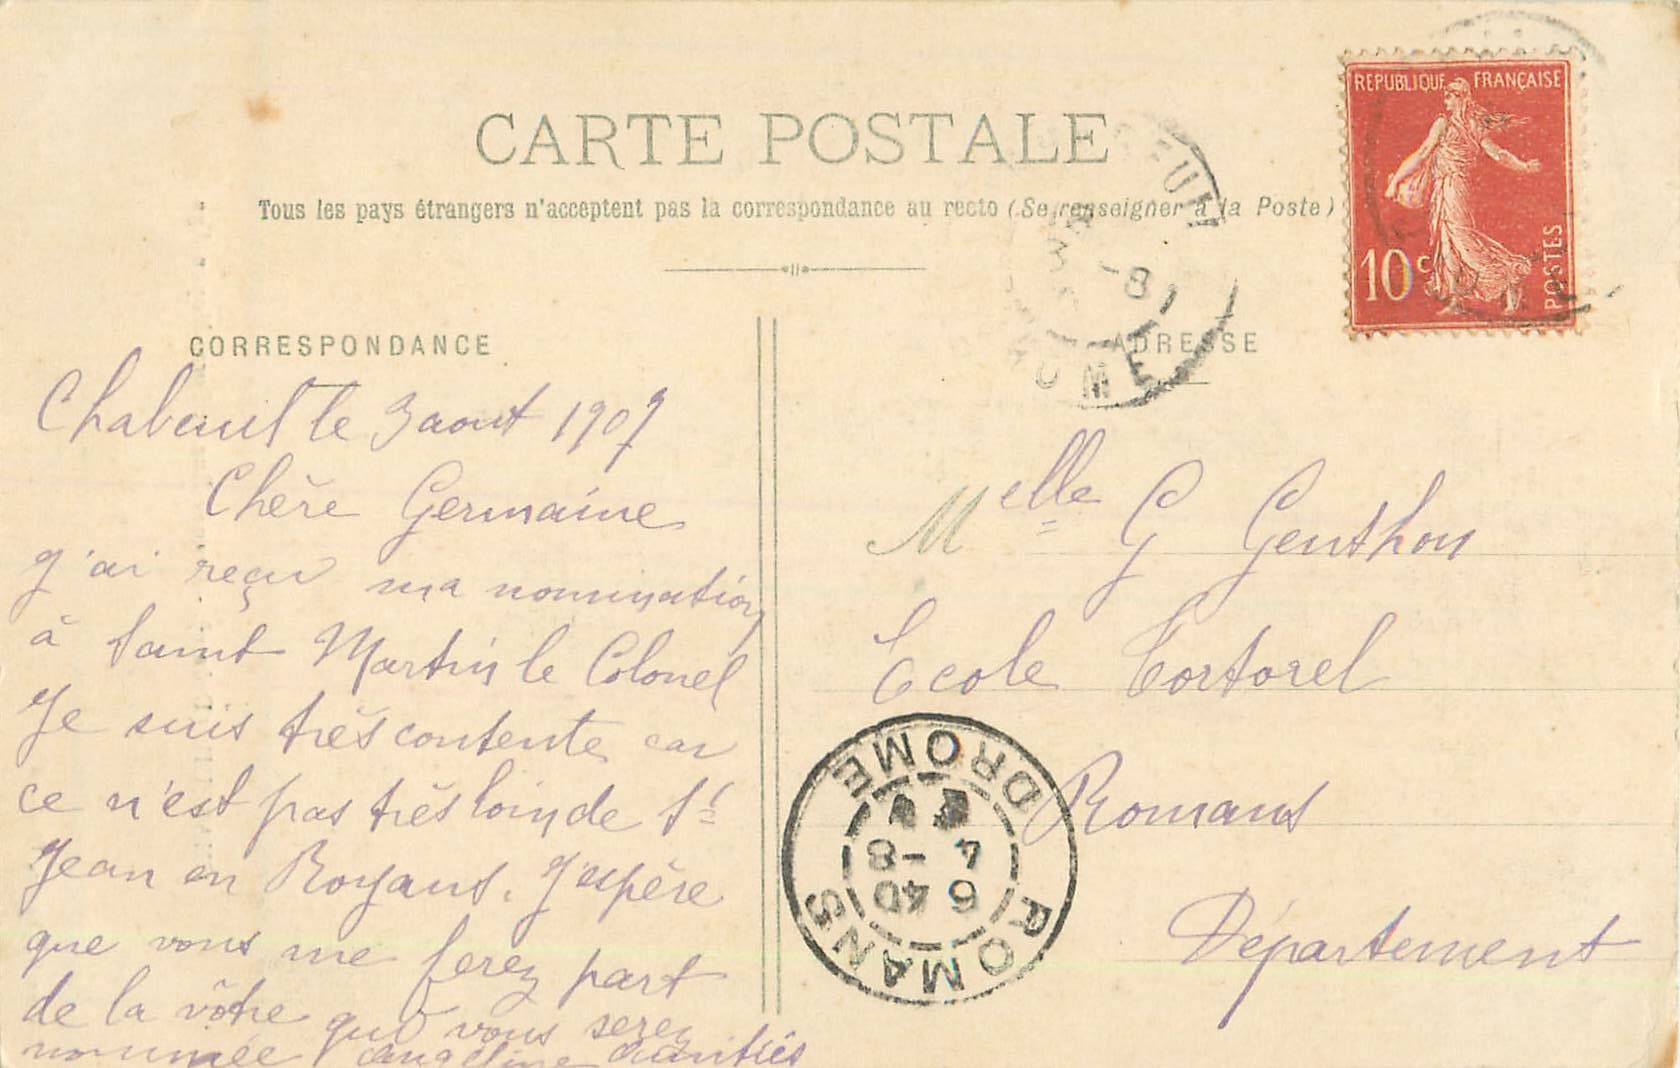 CARTE POSTALE
Tous les pays étrangers n'acceptent pas la correspondance au recto (Se renseigner à la Poste)
REPUBLIQUE FRANÇAISE
10 c
POSTES
CORRESPONDANCE
ADRESSE
Chabeuil le 3 aout 1907
Chère Germaine
J'ai reçu ma nomination
à Saint Martin le Colonel
Je suis très contente car
ce n'est pas très loin de St
Jean en Royans. J'espère
que vous me ferez part
de la vôtre qud vous serez
nommée Angéline amitiés
Melle G Genthon
Ecole Tortorel
Romans
Département
-8
DROME
ROMANS DROME
6 40
4 -8